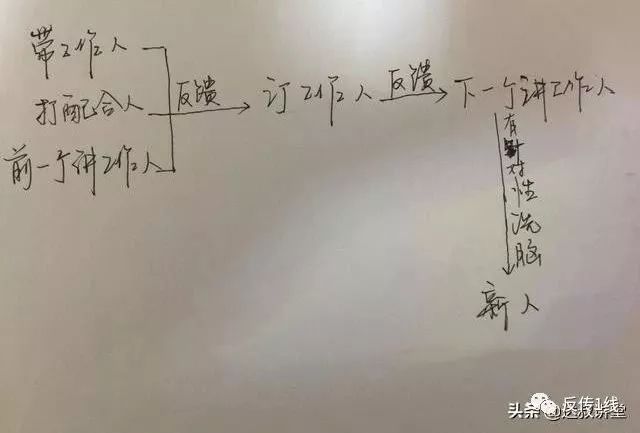 带工作人
打配合人
前一个讲工作人
反馈
订工作人
反馈
下一个讲工作人
有针对性洗脑
新人
反传1线
头条@达叔讲堂